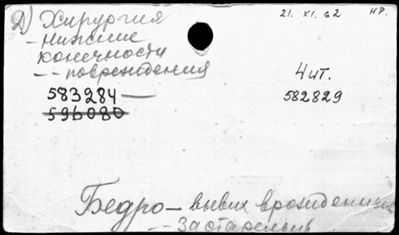 2) Хирургия
21. XI. 62 НР.
- нижние
конечности
-- повреждения
Чит.
583284 —
582829
596080
Бедро – вывих врожденный
-- Застарелый